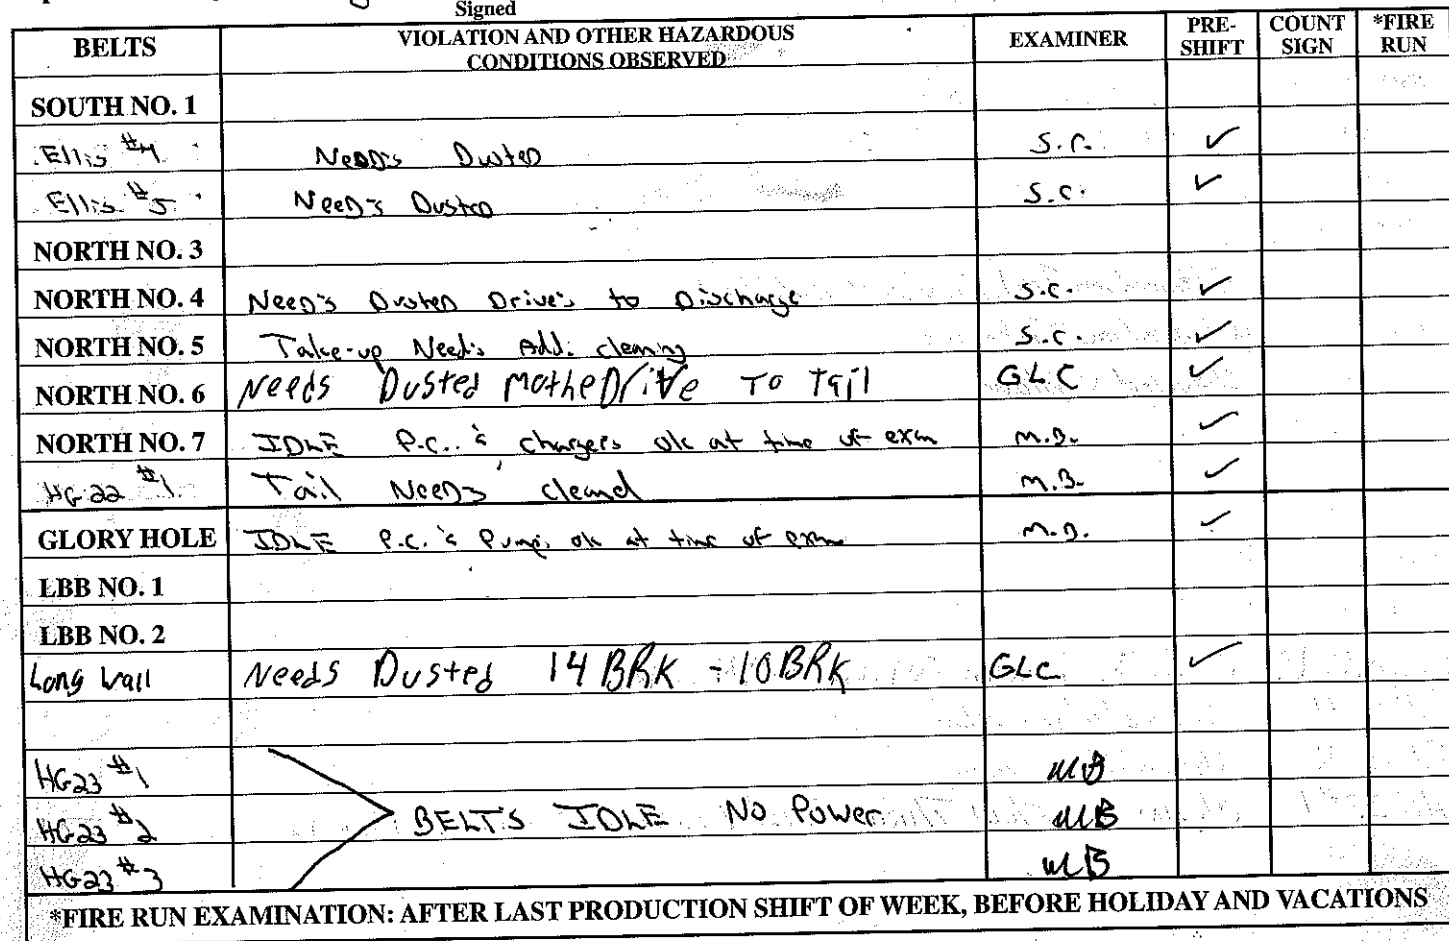 Signed
BELTS VIOLATION AND OTHER HAZARDOUS CONDITIONS OBSERVED EXAMINER PRE-SHIFT COUNT SIGN *FIRE RUN
SOUTH NO. 1
Ellis #4 Need's Dusted S.C. ✓
Ellis #5 Need's Dusted S.C. ✓
NORTH NO. 3
NORTH NO. 4 Need's Dusted Drive's to Discharge S.C. ✓
NORTH NO. 5 Take-up Need's Add. cleaning S.C. ✓
NORTH NO. 6 Needs Dusted MotheDrive To Tail GLC ✓
NORTH NO. 7 IDLE P.C.'s chargers ok at time of exm M.B. ✓
HG 22 #1 Tail Need's cleand M.B. ✓
GLORY HOLE IDLE P.C.'s Pump, ok at time of exm M.B. ✓
LBB NO. 1
LBB NO. 2
Long wall Needs Dusted 14 BRK - 10 BRK GLC ✓
HG23 #1 MB
HG23 #2 BELT'S IDLE No Power MB
HG23 #3 MB
*FIRE RUN EXAMINATION: AFTER LAST PRODUCTION SHIFT OF WEEK, BEFORE HOLIDAY AND VACATIONS